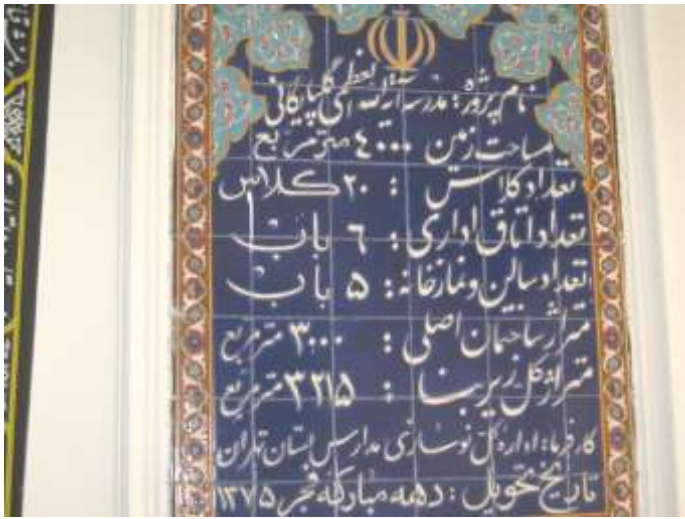 نام پروژه: مدرسه آیة الله العظمی گلپایگانی
مساحت زمین ۴۰۰۰ مترمربع
تعداد کلاس : ۲۰ کلاس
تعداد اتاق اداری : ۶ باب
تعداد سالن و نمازخانه : ۵ باب
متراژ ساختمان اصلی : ۳۰۰۰ مترمربع
متراژ کل زیربنا : ۳۲۱۵ مترمربع
کارفرما: اداره کل نوسازی مدارس استان تهران
تاریخ تحویل : دهه مبارکه فجر ۱۳۷۵